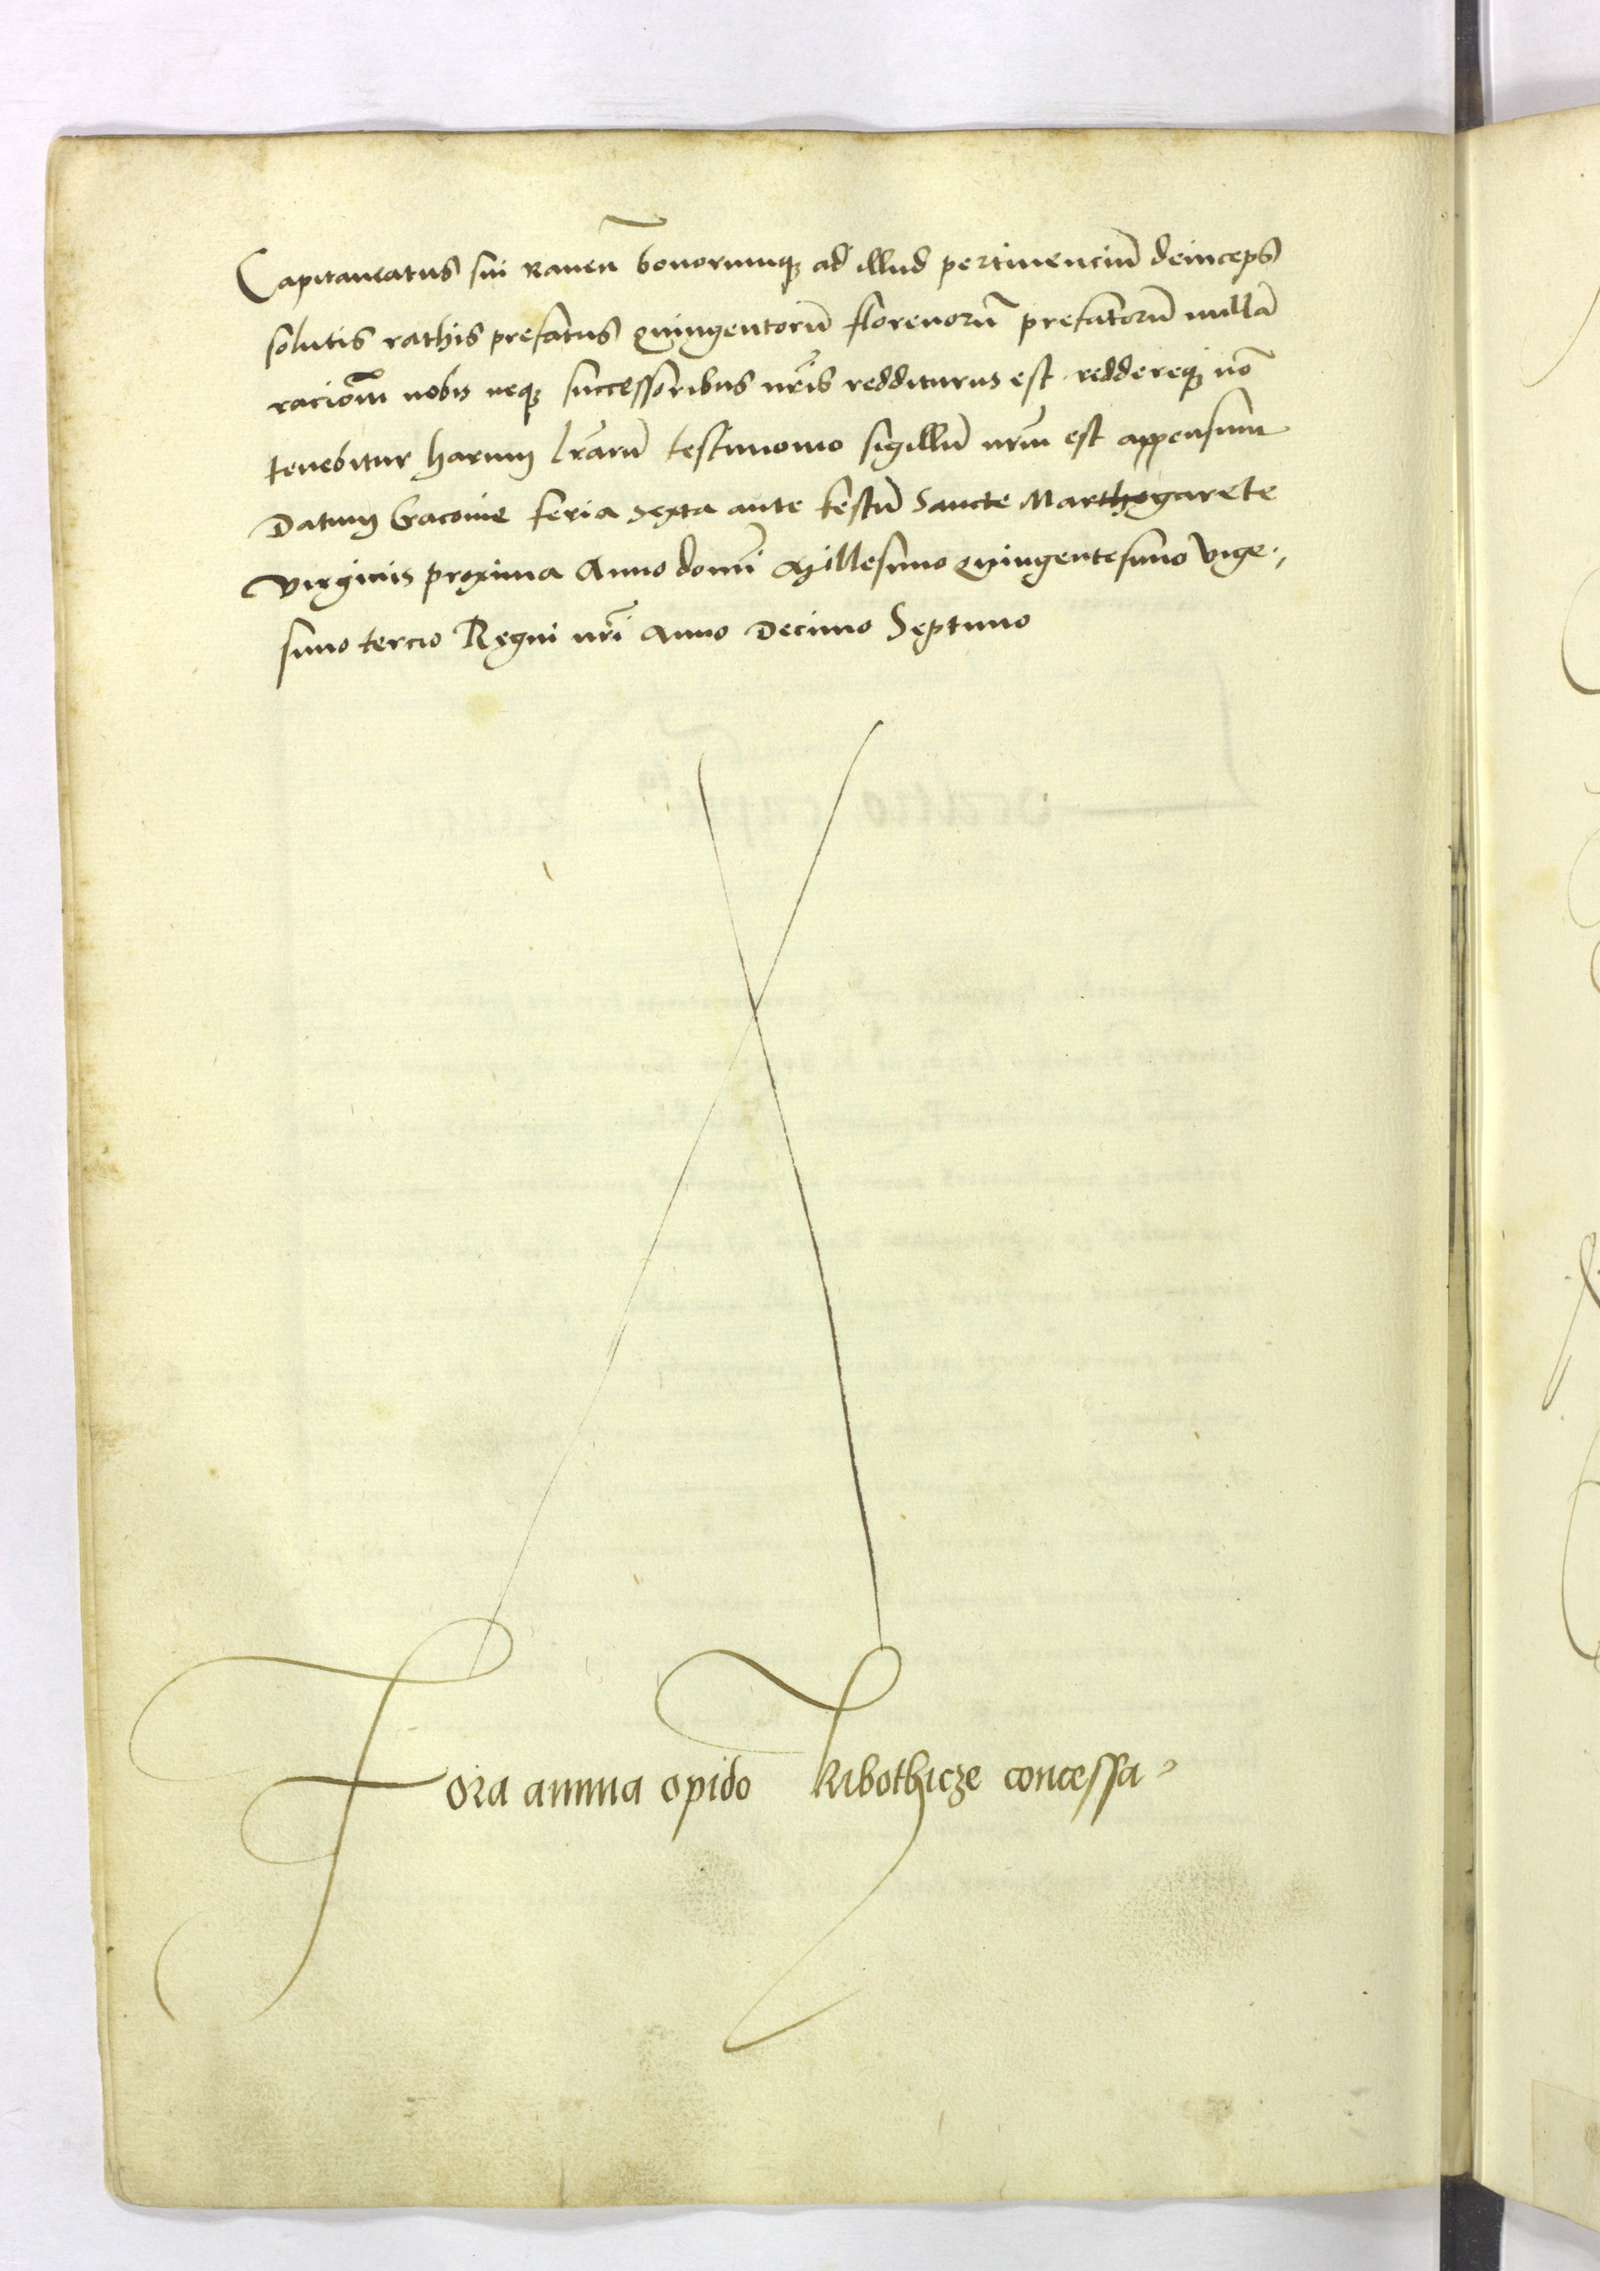 Capitaneatus sui Rauen̄ bonorumqꝫ ad illud pertinenciu͞ deinceps
solutis rathis prefatus quingentoru͞ florenoru͞ prefatoru͞ nulla͞
racio͞m nobis neqꝫ successoribus nr͞is redditurus est reddereqꝫ no͞
tenebitur harum lr͞aru͞ testimonio sigillu͞ nr͞m est appensum
Datum Cracouie feria sexta ante festu͞ Sancte Marthogarete
virginis proxima Anno domi͞ Millesimo quingentesimo vige-
simo tercio Regni nr͞i Anno Decimo Septimo
Fora annua opido Ribothicze concessa